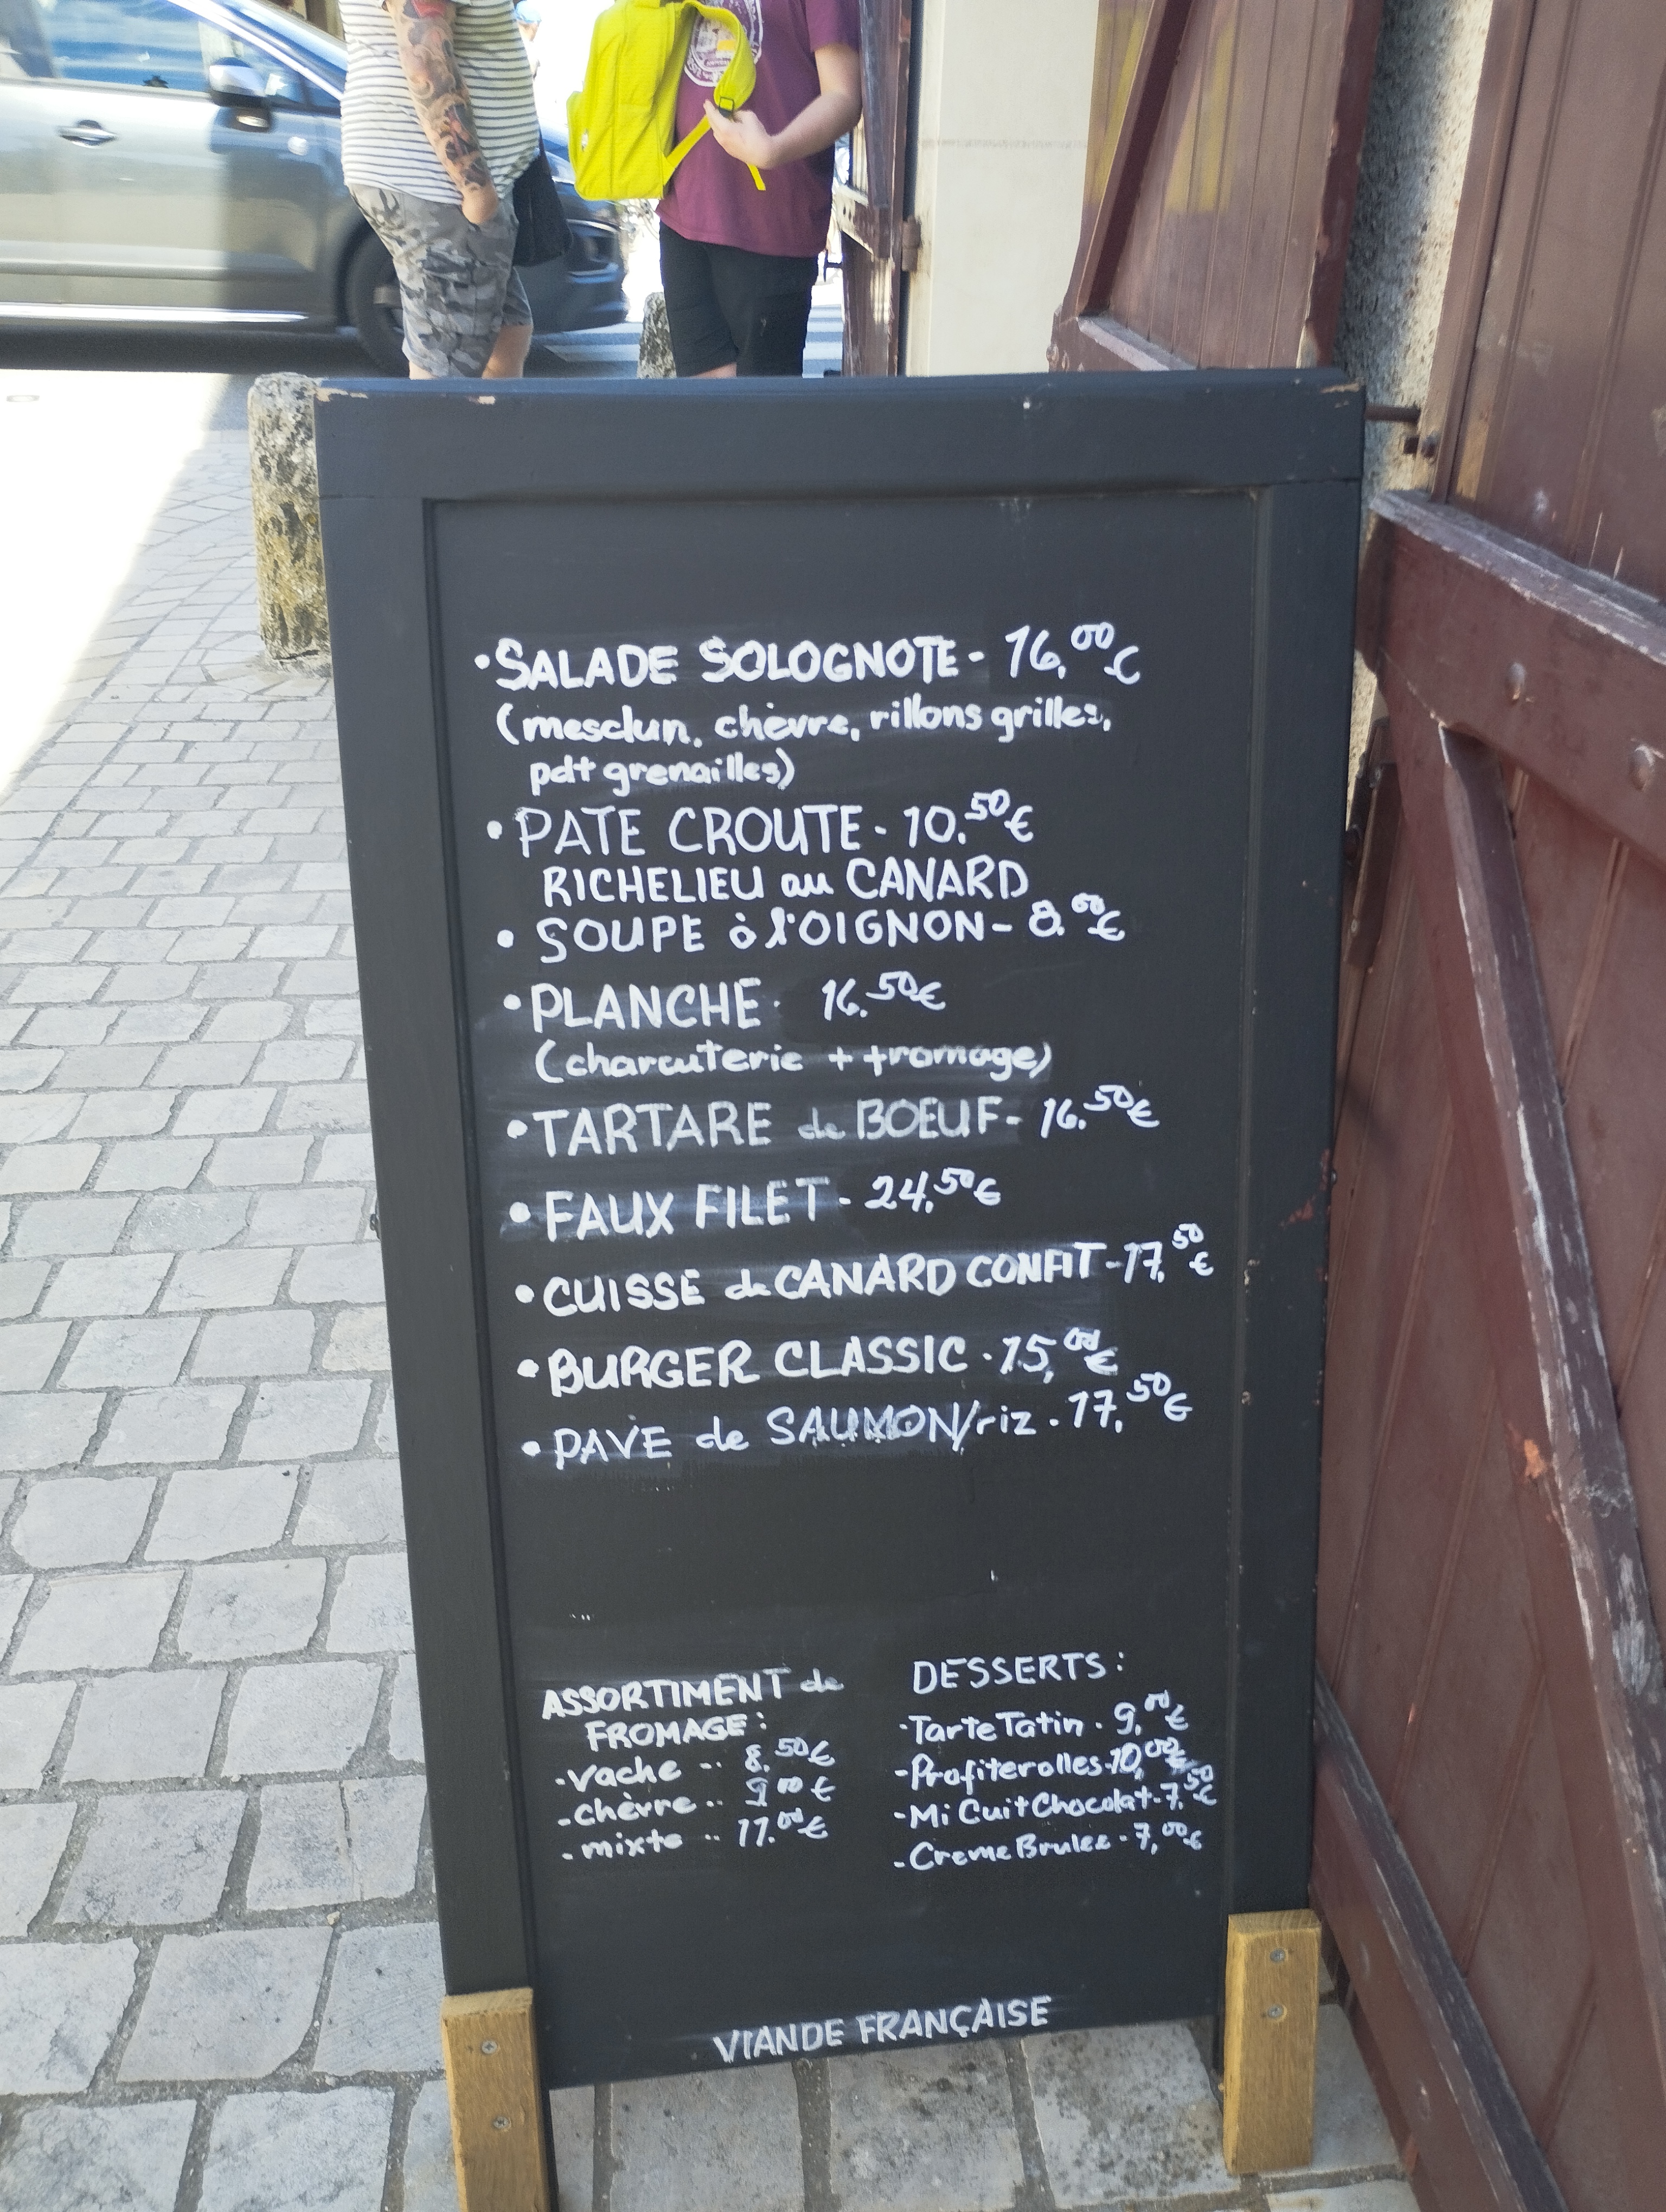 •SALADE SOLOGNOTE - 16,00€
(mesclun, chèvre, rillons grilles,
pdt grenailles)
•PATE CROUTE - 10,50€
RICHELIEU au CANARD
• SOUPE à l'OIGNON - 8,00€
•PLANCHE - 16,50€
(charcuterie + fromage)
•TARTARE de BOEUF - 16,50€
•FAUX FILET - 24,50€
•CUISSE de CANARD CONFIT - 17,50€
•BURGER CLASSIC - 15,00€
•PAVE de SAUMON/riz - 17,50€
ASSORTIMENT de
FROMAGE :
-vache -- 8,50€
-chèvre -- 9,00€
-mixte -- 11,00€
DESSERTS :
-Tarte Tatin - 9,00€
-Profiterolles - 10,00€
-Mi Cuit Chocolat - 7,50€
-Creme Brulee - 7,00€
VIANDE FRANÇAISE